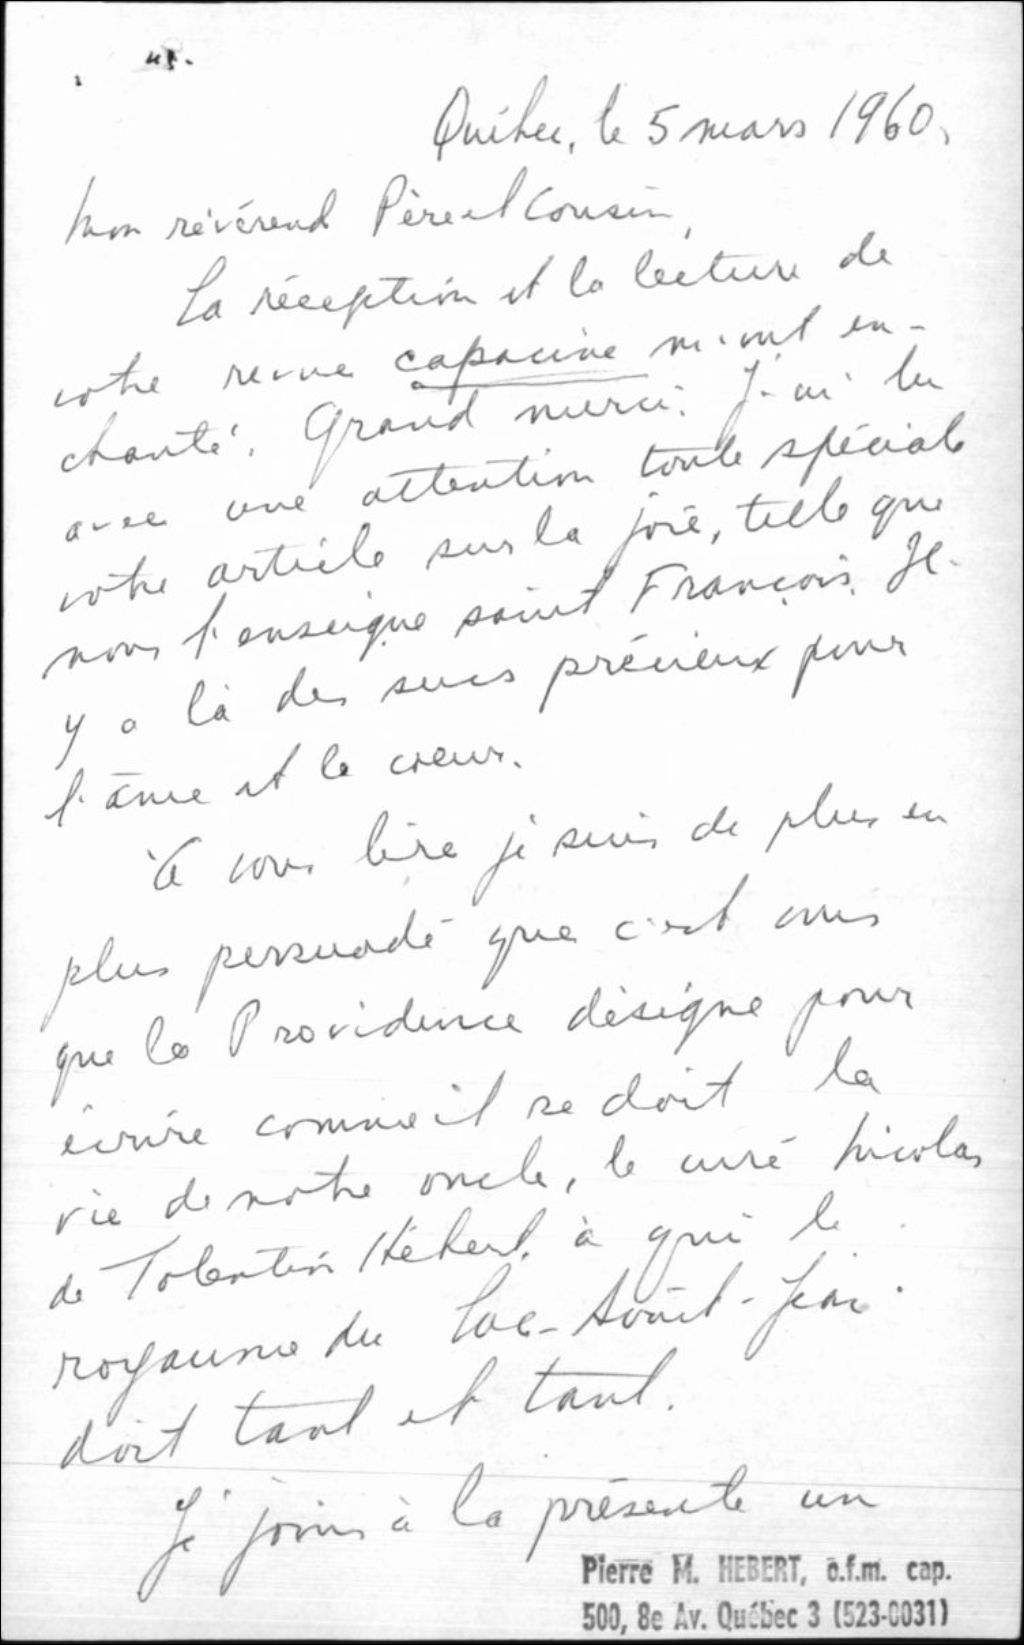 Québec, le 5 mars 1960.
Mon révérend Père et Cousin,
La réception et la lecture de
votre revue capucine m'ont en-
chanté. Grand merci. J'ai lu
avec une attention toute spéciale
votre article sur la joie, telle que
nous l'enseigne saint François. Il
y a là des sucs précieux pour
l'âme et le coeur.
À vous lire je suis de plus en
plus persuadé que c'est vous
que la Providence désigne pour
écrire comme il se doit la
vie de notre oncle, le curé Nicolas
de Tolentin Hébert, à qui le
royaume du Lac-Saint-Jean
doit tant et tant.
Je joins à la présente un
Pierre M. HEBERT, o.f.m. cap.
500, 8e Av. Québec 3 (523-0031)